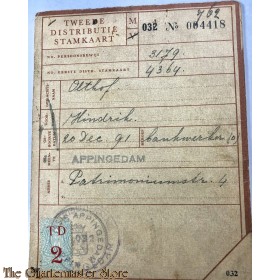 762
TWEEDE DISTRIBUTIE STAMKAART
M
032 No 004418
NO. PERSOONSBEWIJS 3179
NO. EERSTE DISTR. STAMKAART 4364
Olthof
Hindrik
20 Dec. 91 bankwerker
APPINGEDAM
Patrimoniumstr. 4
TD
2
APPINGEDAM
032
032
© The Quartermaster Store